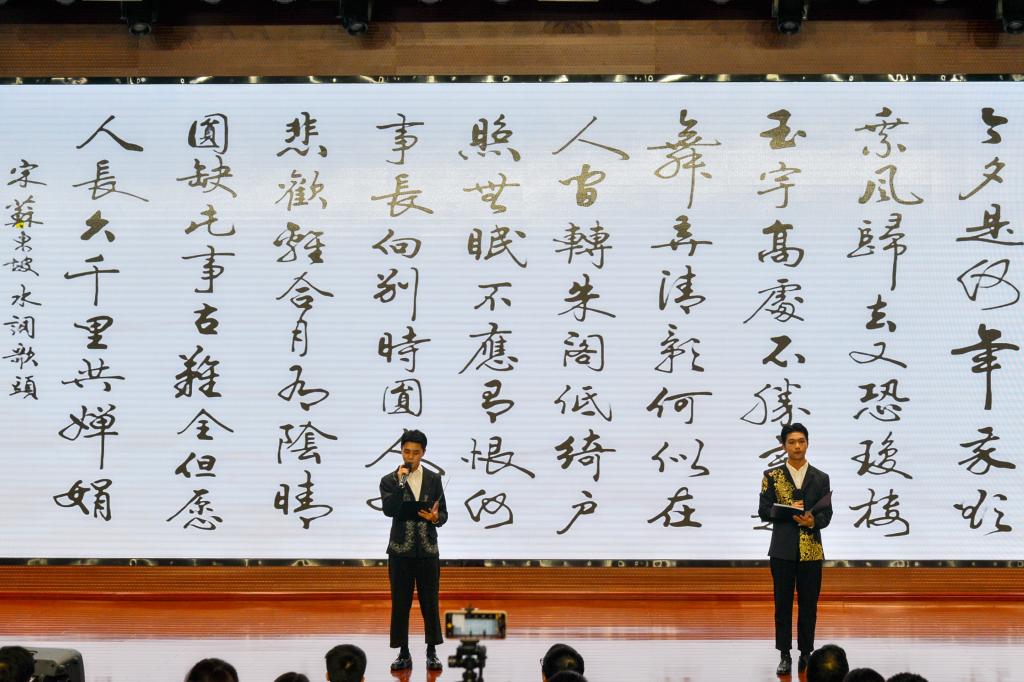 今夕是何年我欲
乘風歸去又恐瓊樓
玉宇高處不勝
舞弄清影何似在
人間轉朱閣低綺户
照無眠不應有恨何
事長向别時圓人
悲歡離合月有陰晴
圓缺此事古難全但愿
人長久千里共嬋娟
宋蘇東坡水調歌頭